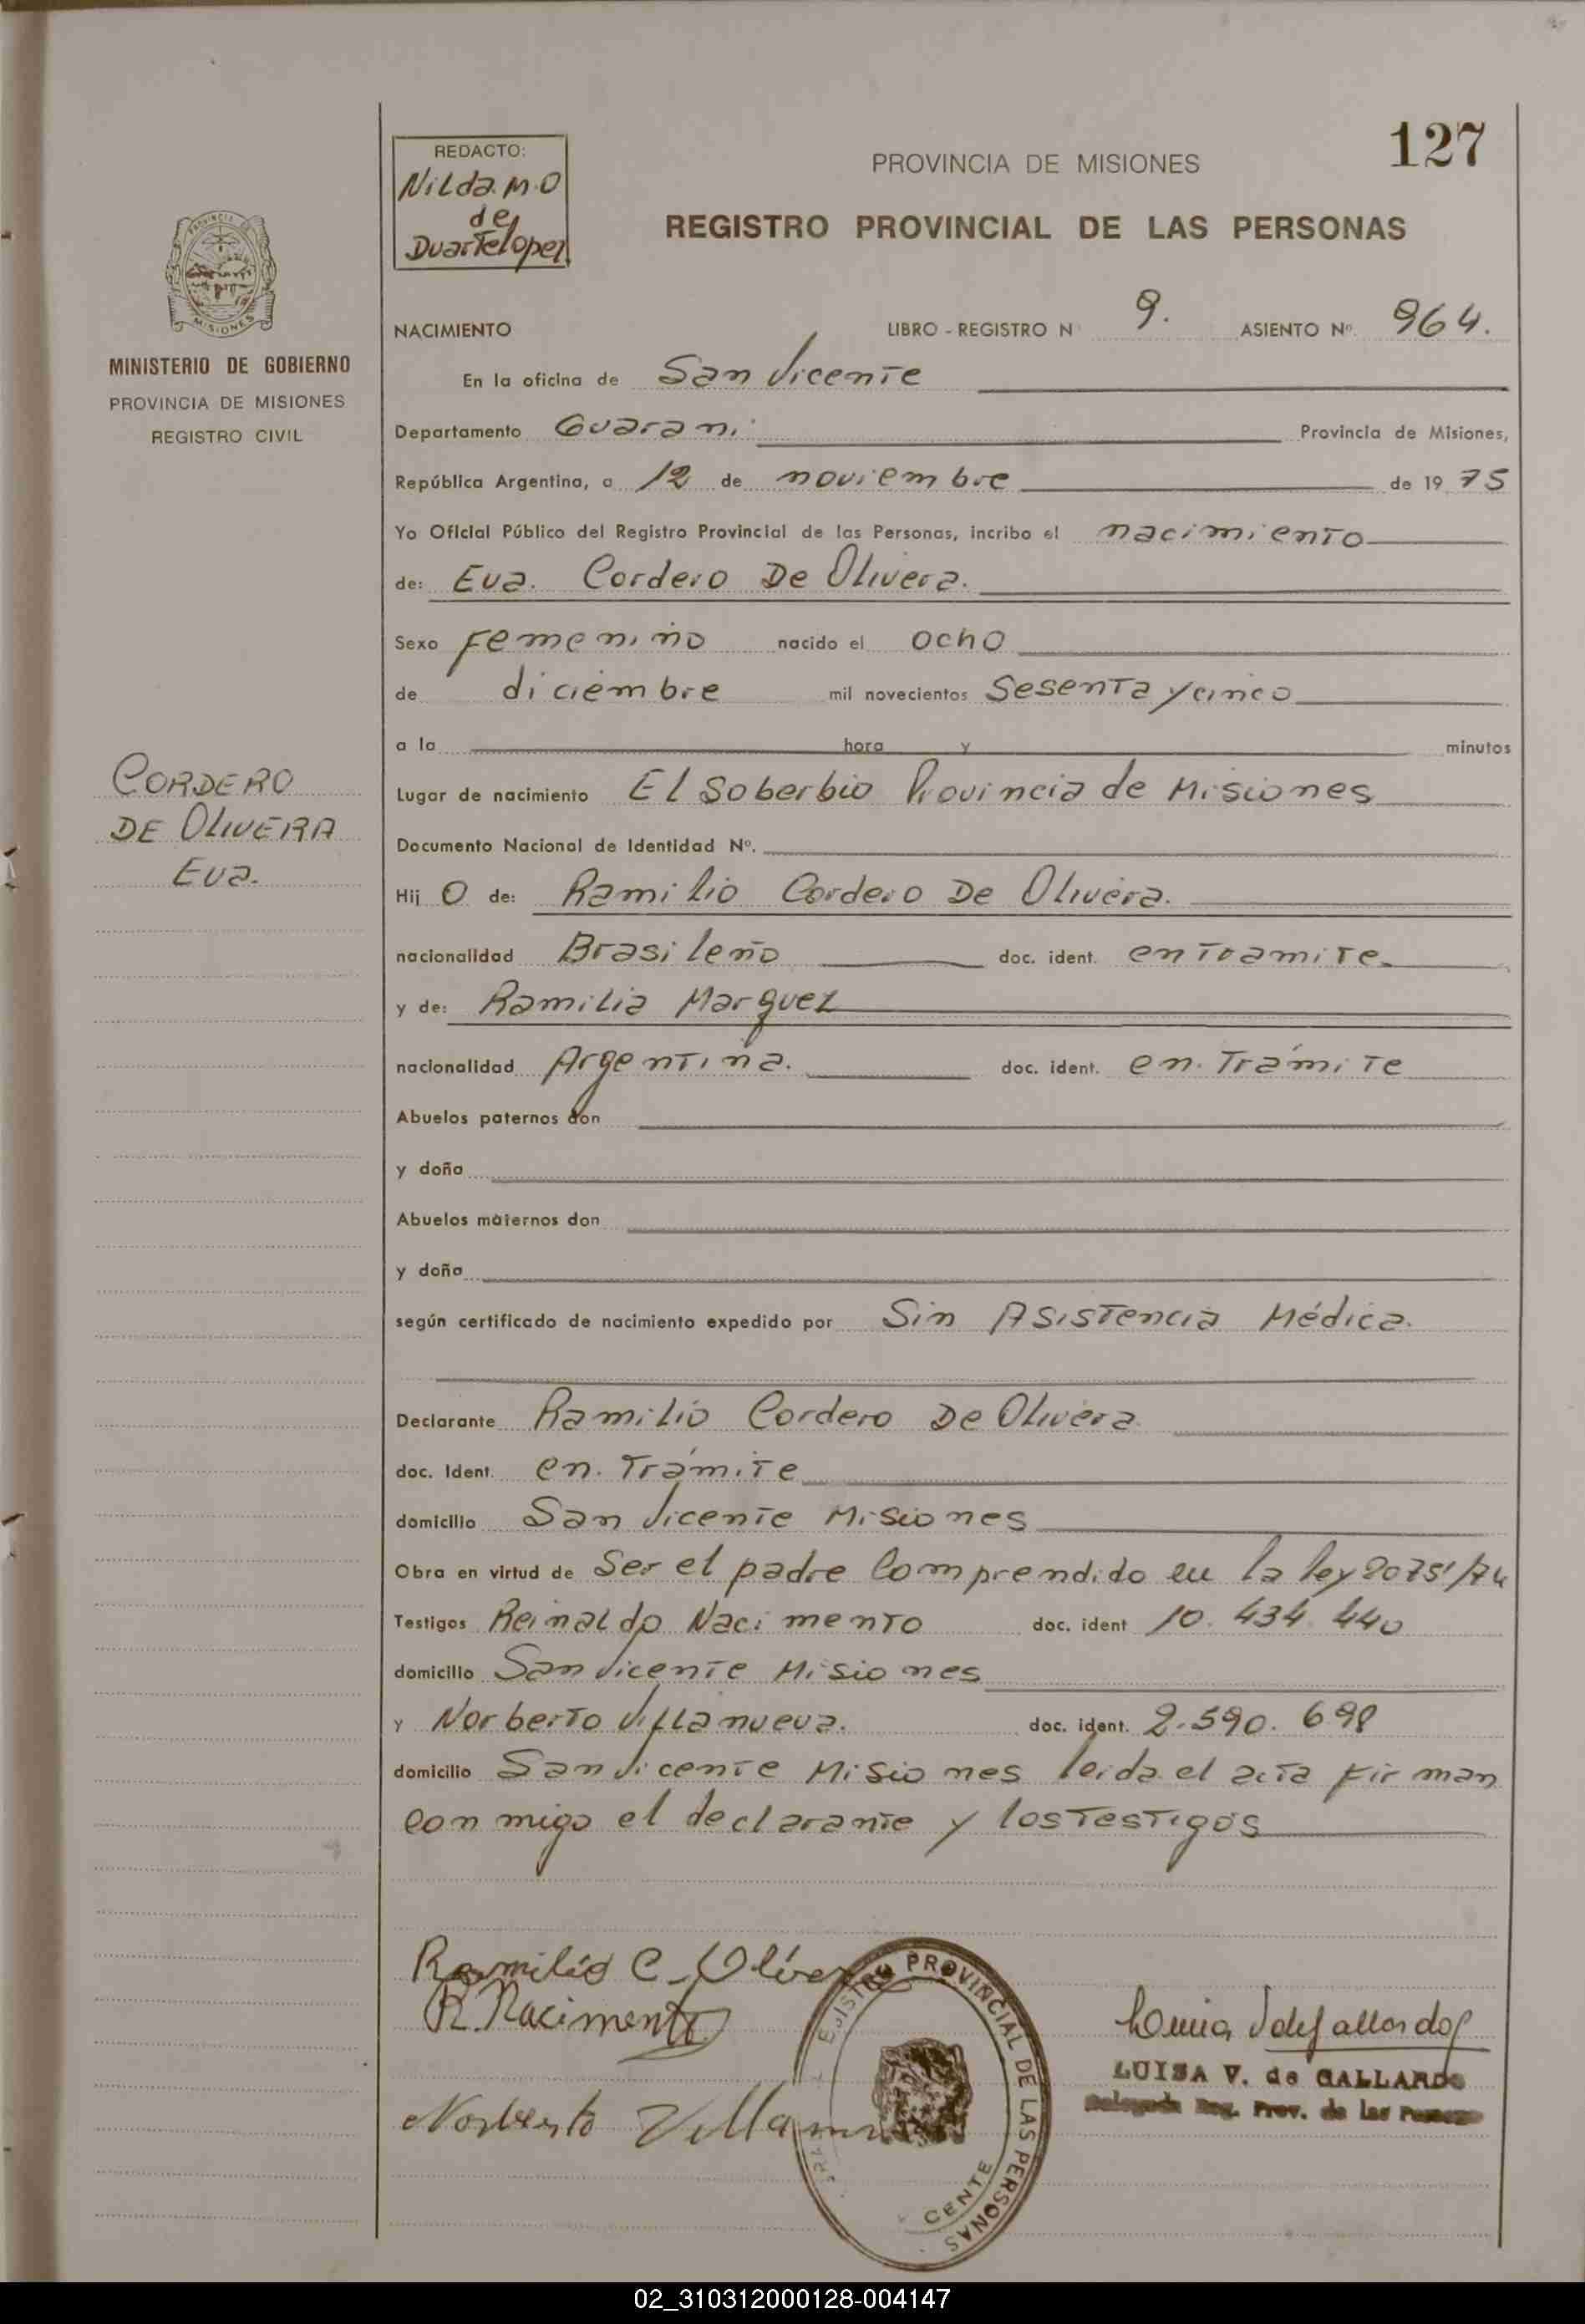 127
REDACTO:
Nilda. M. O
de
Duarte Lopez
PROVINCIA DE MISIONES
REGISTRO PROVINCIAL DE LAS PERSONAS
PROVINCIA
MISIONES
MINISTERIO DE GOBIERNO
PROVINCIA DE MISIONES
REGISTRO CIVIL
CORDERO
DE OLIVERA
Eva.
NACIMIENTO LIBRO - REGISTRO N 9. ASIENTO Nº 964.
En la oficina de San Vicente
Departamento Guarani Provincia de Misiones,
República Argentina, a 12 de noviembre de 19 75
Yo Oficial Público del Registro Provincial de las Personas, incribo el nacimiento
de: Eva. Cordero De Olivera.
Sexo Femenino nacido el ocho
de diciembre mil novecientos Sesenta y cinco
a la hora y minutos
Lugar de nacimiento El Soberbio Provincia de Misiones
Documento Nacional de Identidad Nº.
Hij O de: Ramilio Cordero De Olivera.
nacionalidad Brasileño doc. ident. en tramite.
y de: Ramilia Marquez
nacionalidad Argentina. doc. ident. en. Trámite
Abuelos paternos don
y doña
Abuelos maternos don
y doña
según certificado de nacimiento expedido por Sin Asistencia Médica.
Declarante Ramilio Cordero De Olivera
doc. Ident. en. Trámite
domicilio San Vicente Misiones
Obra en virtud de Ser el padre Comprendido en la ley 20751/74
Testigos Reinaldo Nacimento doc. ident 10. 434. 440
domicilio San Vicente Misiones
y Norberto Villanueva. doc. ident. 2.590. 698
domicilio San Vicente Misiones leida el acta firman
conmigo el declarante y los Testigos
Ramilio C. Oliver
R. Nacimento
Norberto Villanu
REGISTRO PROVINCIAL DE LAS PERSONAS
CENTE
Luisa V de Gallardo
LUISA V. de GALLARDO
Delegada Reg. Prov. de las Personas
02_310312000128-004147